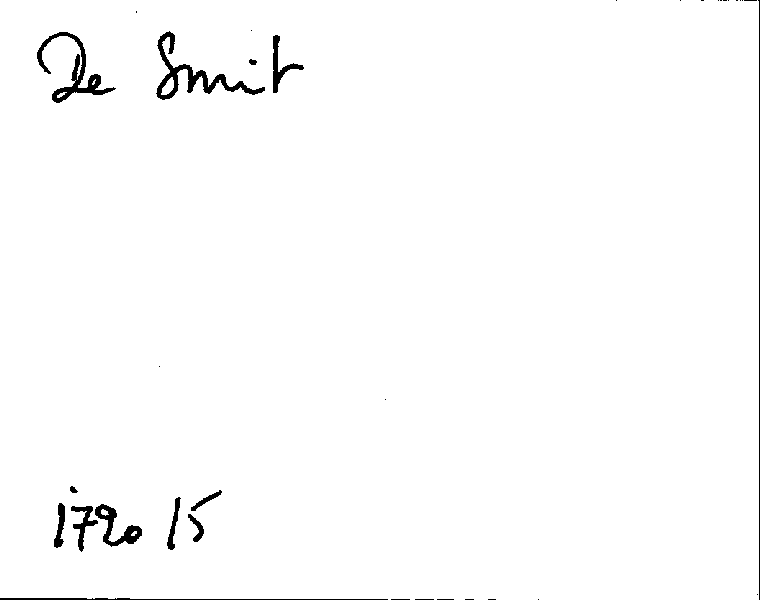 De Smit
1790 15